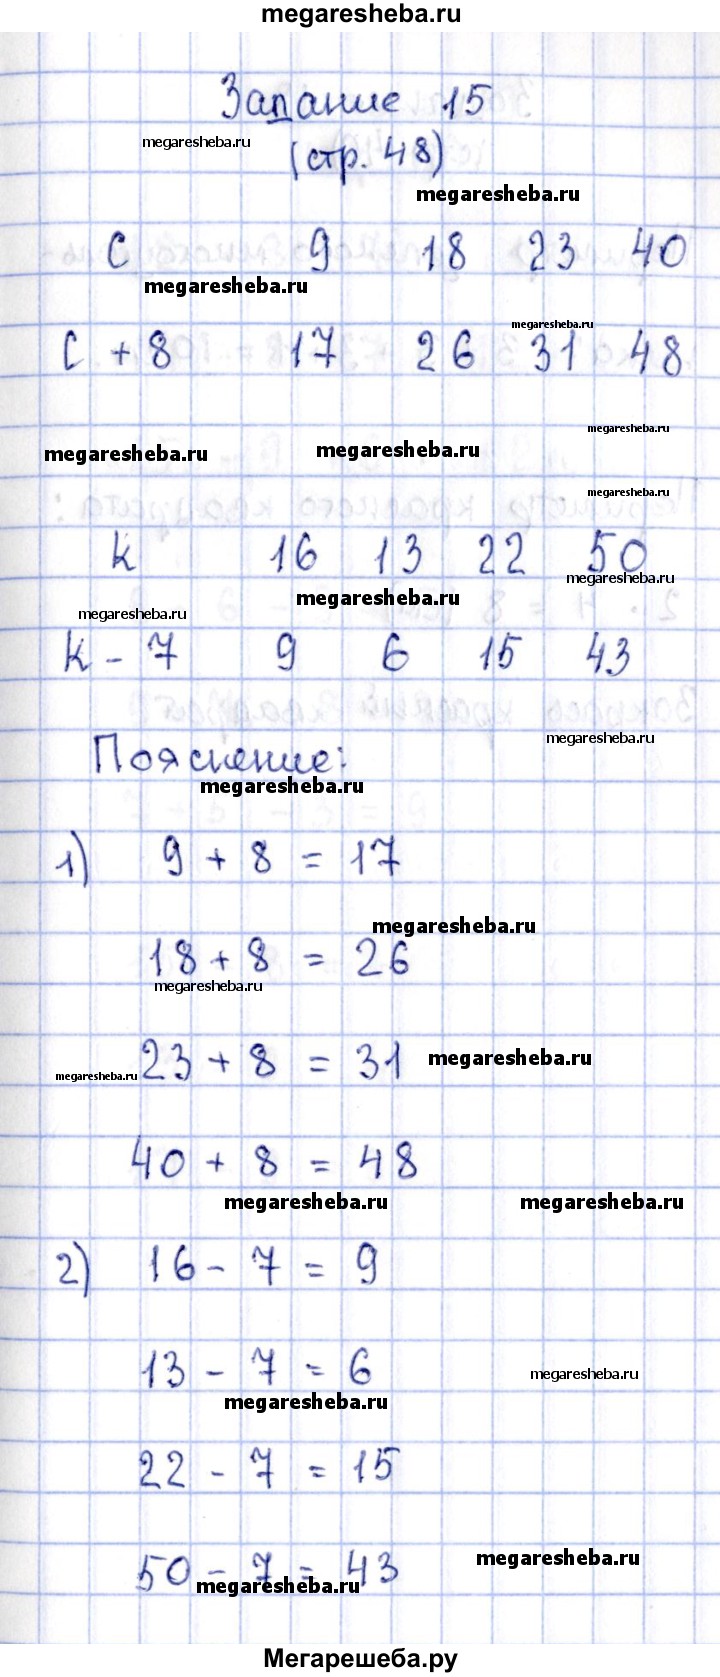 megaresheba.ru
Задание 15
megaresheba.ru
(стр. 48)
megaresheba.ru
c 9 18 23 40
megaresheba.ru
megaresheba.ru
c + 8 17 26 31 48
megaresheba.ru
megaresheba.ru
megaresheba.ru
megaresheba.ru
k 16 13 22 50
megaresheba.ru
megaresheba.ru
megaresheba.ru
k - 7 9 6 15 43
megaresheba.ru
Пояснение:
megaresheba.ru
1) 9 + 8 = 17
megaresheba.ru
18 + 8 = 26
megaresheba.ru
23 + 8 = 31
megaresheba.ru
megaresheba.ru
40 + 8 = 48
megaresheba.ru
megaresheba.ru
2) 16 - 7 = 9
13 - 7 = 6
megaresheba.ru
megaresheba.ru
22 - 7 = 15
megaresheba.ru
50 - 7 = 43
megaresheba.ru
Мегарешеба.ру